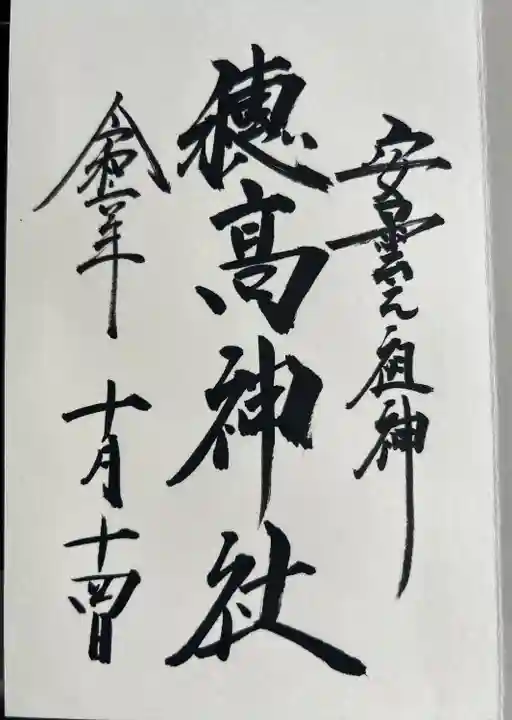 安曇之祖神
穂髙神社
令和六年 十月十四日